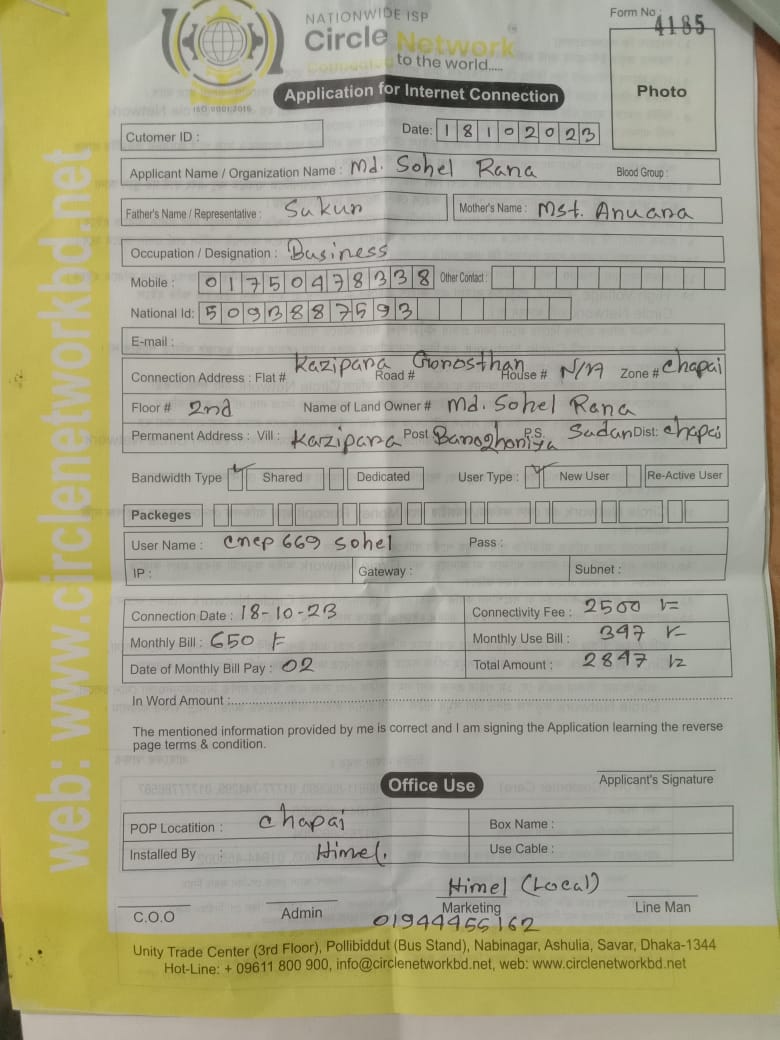 NATIONWIDE ISP
Circle Network
Connected to the world.....
ISO 9001:2015
Form No : 4185
Photo
Application for Internet Connection
Cutomer ID :
Date: 18102023
Applicant Name / Organization Name : Md. Sohel Rana Blood Group :
Father's Name / Representative : Sukur Mother's Name : Mst. Anuara
Occupation / Designation : Business
Mobile : 01750478338 Other Contact :
National Id: 5093887593
E-mail :
Connection Address : Flat # Kazipara Road # Gorosthan House # N/A Zone # Chapai
Floor # 2nd Name of Land Owner # Md. Sohel Rana
Permanent Address : Vill : Kazipara Post Baroghoriya P.S. Sadar Dist: Chapai
Bandwidth Type ✓ Shared Dedicated User Type : ✓ New User Re-Active User
Packeges
User Name : cnep 669 sohel Pass :
IP : Gateway : Subnet :
Connection Date : 18-10-23 Connectivity Fee : 2500 /=
Monthly Bill : 650 /= Monthly Use Bill : 347 /=
Date of Monthly Bill Pay : 02 Total Amount : 2847 /=
In Word Amount :
The mentioned information provided by me is correct and I am signing the Application learning the reverse
page terms & condition.
Applicant's Signature
Office Use
POP Locatition : Chapai Box Name :
Installed By : Himel. Use Cable :
Himel (Local)
C.O.O Admin Marketing Line Man
01944455162
Unity Trade Center (3rd Floor), Pollibiddut (Bus Stand), Nabinagar, Ashulia, Savar, Dhaka-1344
Hot-Line: + 09611 800 900, info@circlenetworkbd.net, web: www.circlenetworkbd.net
web: www.circlenetworkbd.net